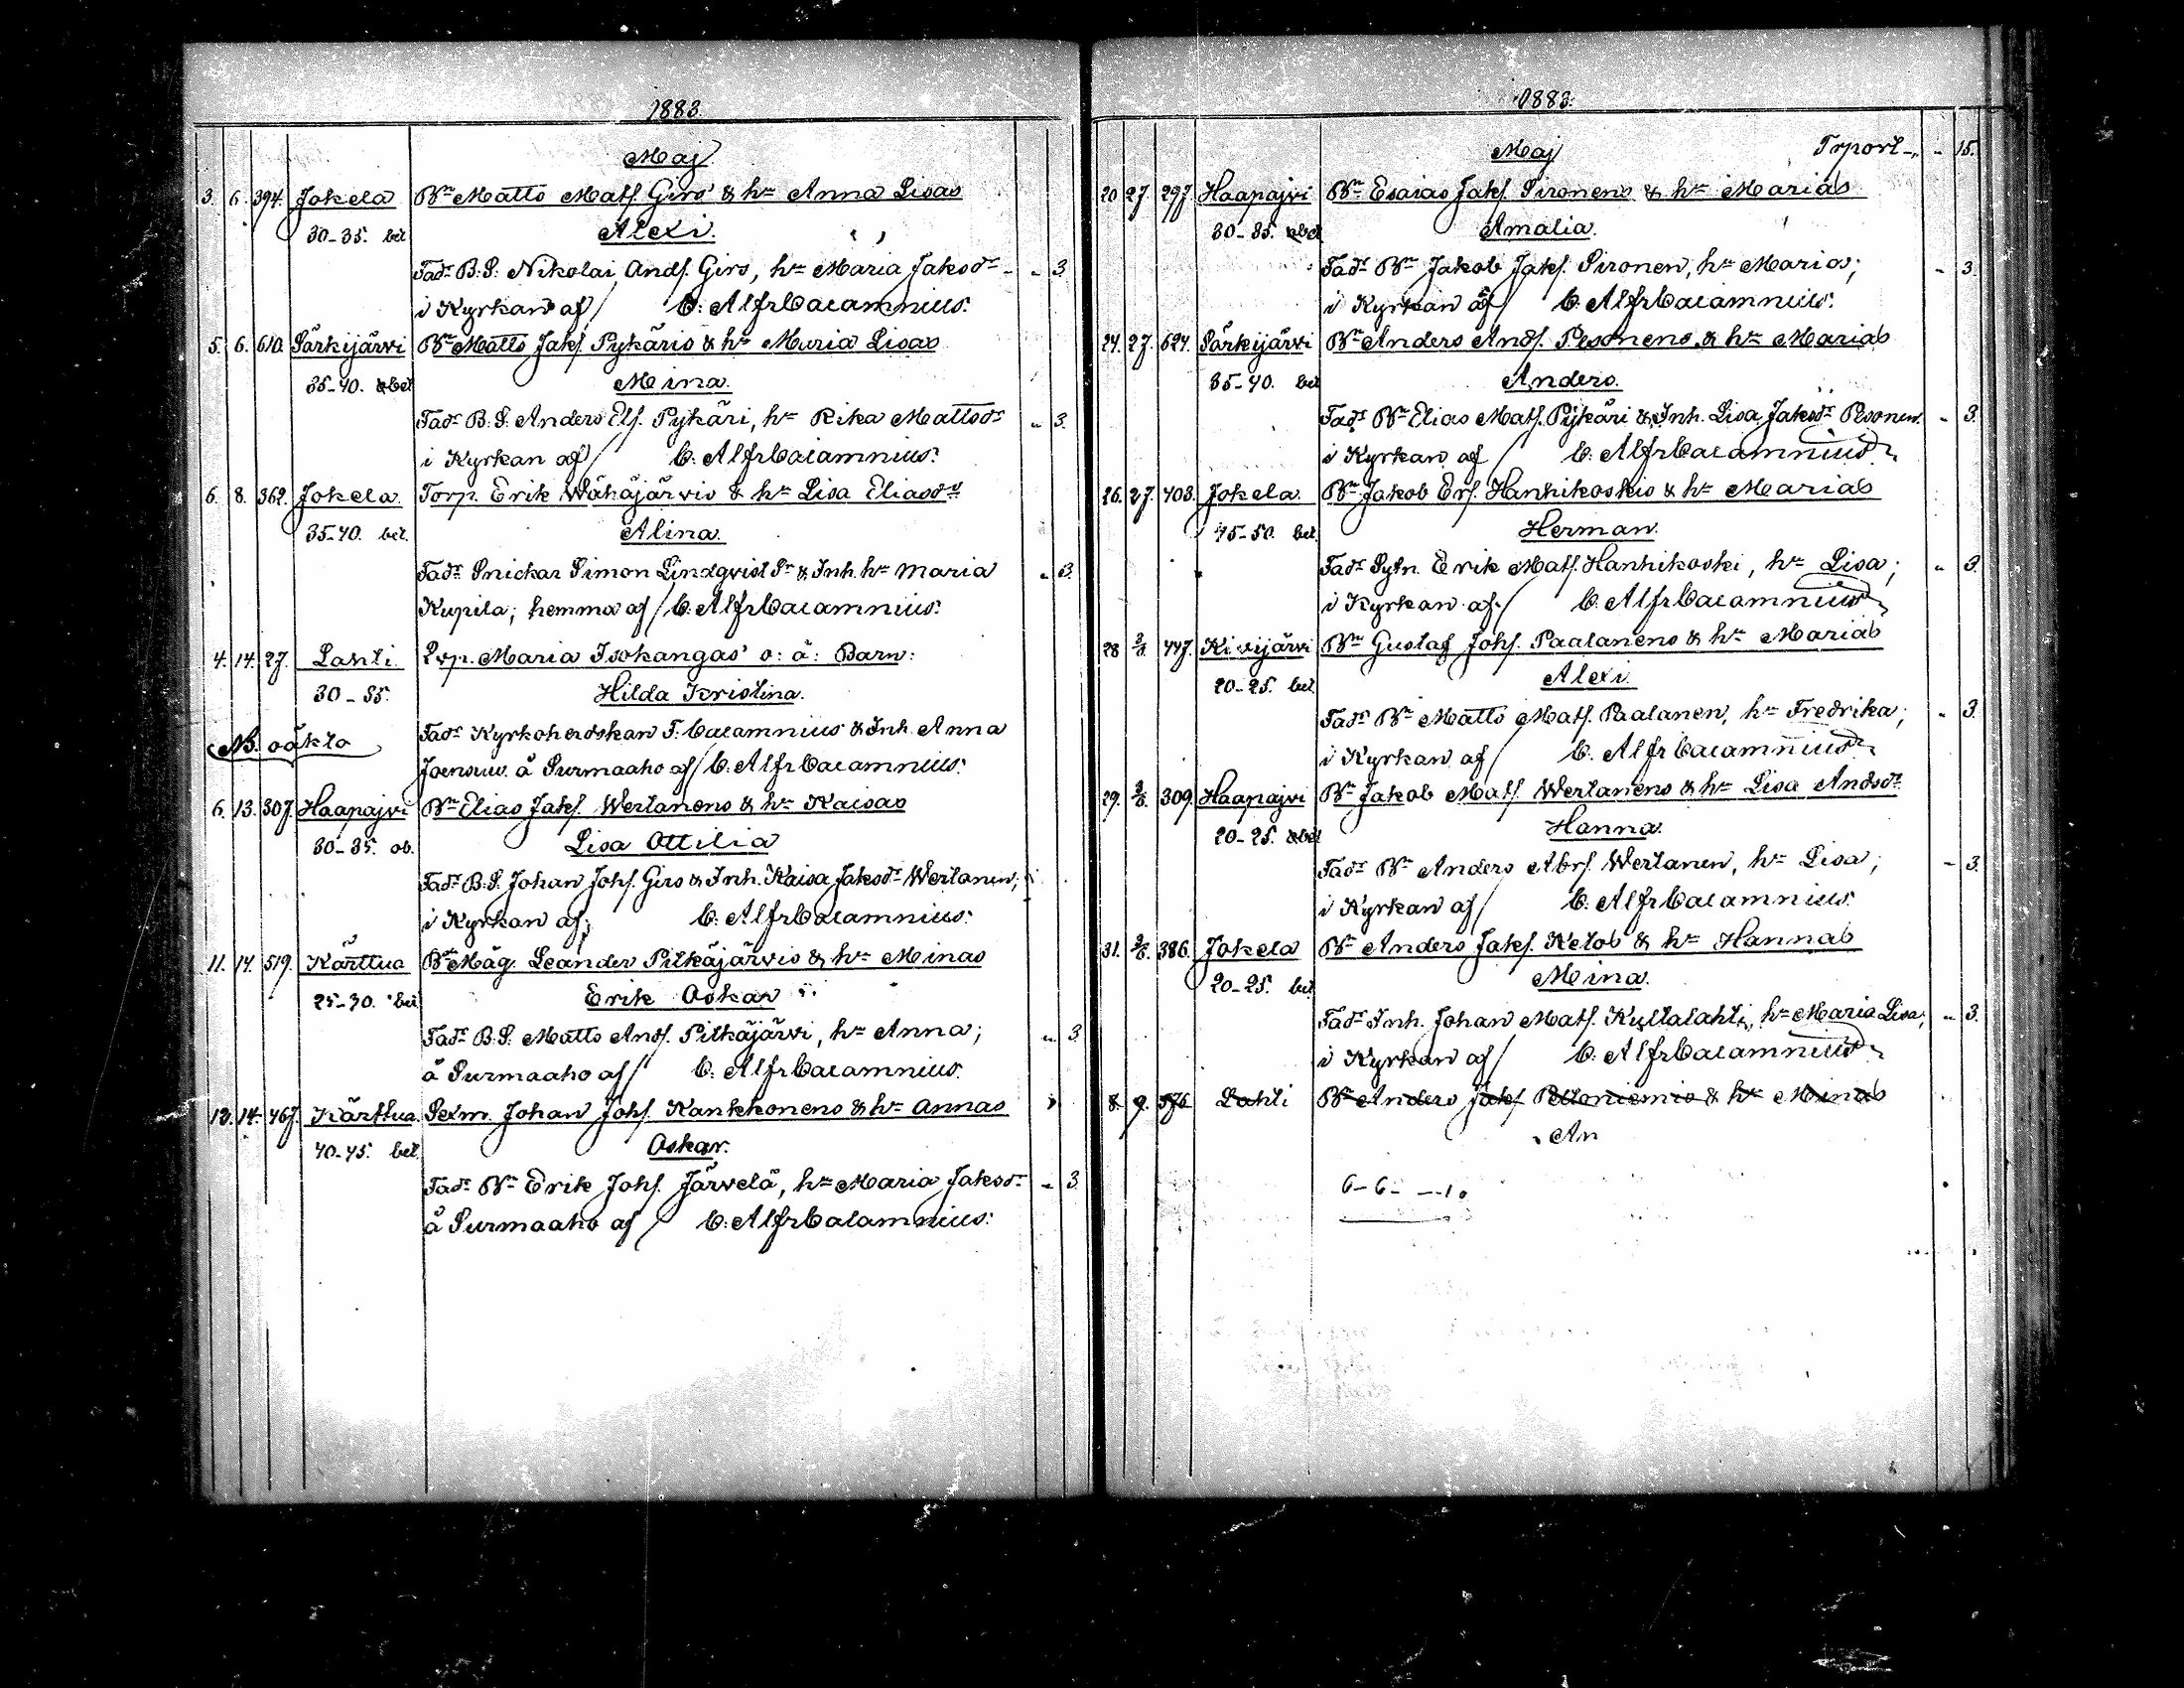 1883.
Maj
3. 6. 394. Jokela Bn Matts Mats. Girs & hn Anna Lisas
30-35. bet Alexi.
Fadr B.S. Nikolai Ands. Girs, hn Maria Jaksdr - 3.
i Kyrkan af / C. Alfr Calamnius.
5. 6. 610. Särkijärvi Bn Matts Jaks. Pykäris & hn Maria Lisas
35-40. obet Mina.
Fadr B.S. Anders Els. Pykäri, hn Rika Mattsdr - 3.
i Kyrkan af / C. Alfr Calamnius.
6. 8. 362. Jokela Torp. Erik Wähäjärvis & hn Lisa Eliasdr
35-40. bet. Alina.
Fadr Snickar Simon Lindqvist Sr & Inh. hn Maria - 3.
Kupila; hemma af / C. Alfr Calamnius.
4. 14. 27. Lahti Lsp. Maria Isokangas' o: ä: Barn:
30-35. Hilda Kristina.
NB. oäkta Fadr Kyrkoherdskan F. Calamnius & Inh. Anna
Joensuu å Surmaaho af / C. Alfr Calamnius.
6. 13. 307. Haapajvi Bn Elias Jaks. Wertanens & hn Kaisas
30-35. ob. Lisa Ottilia
Fadr B.S. Johan Johs. Girs & Inh. Kaisa Jaksdr Wertanen;
i Kyrkan af; C. Alfr Calamnius.
11. 14. 519. Kärttua Bn Måg. Leander Pitkäjärvis & hn Minas
25-30. bet Erik Oskar
Fadr B.S. Matts Ands. Pitkäjärvi, hn Anna; - 3.
å Surmaaho af / C. Alfr Calamnius.
12. 14. 467. Kärttua Sexm. Johan Johs. Kankkonens & hn Annas
40-45. bet. Oskar.
Fadr Bn Erik Johs. Järvelä, hn Maria Jaksdr - 3.
å Surmaaho af / C. Alfr Calamnius.
1883.
Maj Trport - 15.
20 27. 297. Haapajvi Bn Esaias Jaks. Sironens & hn Marias
30-35. obet Amalia.
Fadr Bn Jakob Jaks. Sironen, hn Marias; - 3.
i Kyrkan af / C. Alfr Calamnius.
24. 27. 624. Särkijärvi Bn Anders Ands. Pesonens & hn Marias
35-40. bet Anders.
Fadr Bn Elias Mats. Pykäri & Inh. Lisa Jaksdr Pesonen. - 3.
i Kyrkan af / C. Alfr Calamnius
26. 27. 403. Jokela Bn Jakob Ers. Hanhikoskis & hn Marias
45-50. bet. Herman.
Fadr Sytn. Erik Mats. Hanhikoski, hn Lisa; - 3.
i Kyrkan af / C. Alfr Calamnius
28 3/6. 447. Kivijärvi Bn Gustaf Johs. Paalanens & hn Marias
20-25. bet. Alexi.
Fadr Bn Matts Mats. Paalanen, hn Fredrika; - 3.
i Kyrkan af / C. Alfr Calamnius
29. 3/6. 309. Haapajvi Bn Jakob Mats. Wertanens & hn Lisa Andsdr
20-25. obet Hanna.
Fadr Bn Anders Abrs. Wertanen, hn Lisa; - 3.
i Kyrkan af / C. Alfr Calamnius.
31. 3/6. 386. Jokela Bn Anders Jaks. Ketos & hn Hannas
20-25. bet. Mina.
Fadr Inh. Johan Mats. Kultalahti, hn Maria Lisa; - 3.
i Kyrkan af / C. Alfr Calamnius
8. 9. 576 Lahti Bn Anders Jaks Peltoniemis & hn Minas
An
6-6- --10